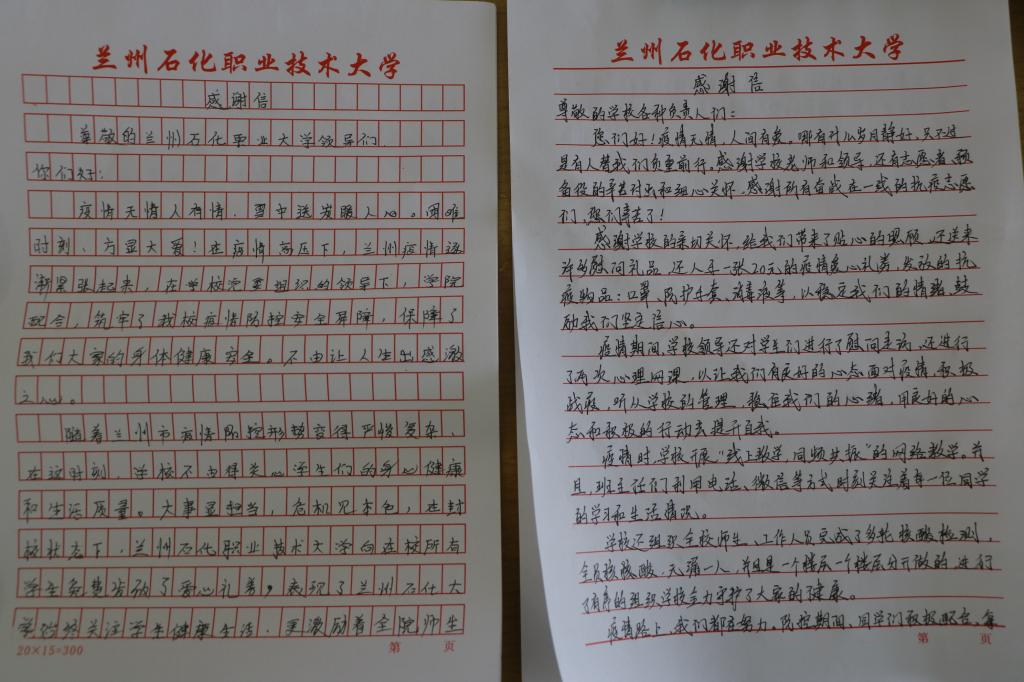 兰州石化职业技术大学
感谢信
尊敬的兰州石化职业大学领导们
你们好:
疫情无情人有情，雪中送炭暖人心。困难
时刻、方显大爱！在疫情高压下，兰州疫情逐
渐紧张起来，在学校党委组织的领导下，学院
配合，筑牢了我校疫情防控安全屏障，保障了
我们大家的身体健康安全。不由让人生出感激
之心。
随着兰州市疫情防控形势变得严峻复杂、
在这时刻，学校不由得关心学生们的身心健康
和生活质量。大事显担当，危机见本色，在封
校状态下，兰州石化职业技术大学向在校所有
学生免费发放了爱心礼券，表现了兰州石化大
学始终关注学生健康生活，更激励着全院师生
20×15=300
第 页
兰州石化职业技术大学
感谢信
尊敬的学校各种负责人们：
您们好！疫情无情，人间有爱。哪有什么岁月静好，只不过
是有人替我们负重前行。感谢学校老师和领导，还有志愿者、预
备役的辛苦付出和细心关怀，感谢所有奋战在一线的抗疫志愿
们，您们辛苦了！
感谢学校的亲切关怀，给我们带来了贴心的照顾，还送来
许多慰问礼品，还人手一张20元的疫情爱心礼券，发放的抗
疫物品：口罩、防护手套、消毒液等，以稳定我们的情绪，鼓
励我们坚定信心。
疫情期间，学校领导还对学生们进行了慰问走访，还进行
了两次心理网课，以让我们有良好的心态面对疫情，积极
战疫，听从学校的管理，稳在我们的心绪，用良好的心
态和积极的行动去提升自我。
疫情时，学校开展“线上教学，同频共振”的网络教学。并
且，班主任们利用电话、微信等方式时刻关注着每一位同学
的学习和生活情况。
学校还组织全校师生、工作人员完成了多轮核酸检测，
全员核核酸，无漏一人，并且是一个楼层一个楼层分开做的，进行
了有序的组织学校全力守护了大家的健康。
疫情路上，我们都在努力。防控期间，同学们积极配合，每
第 页